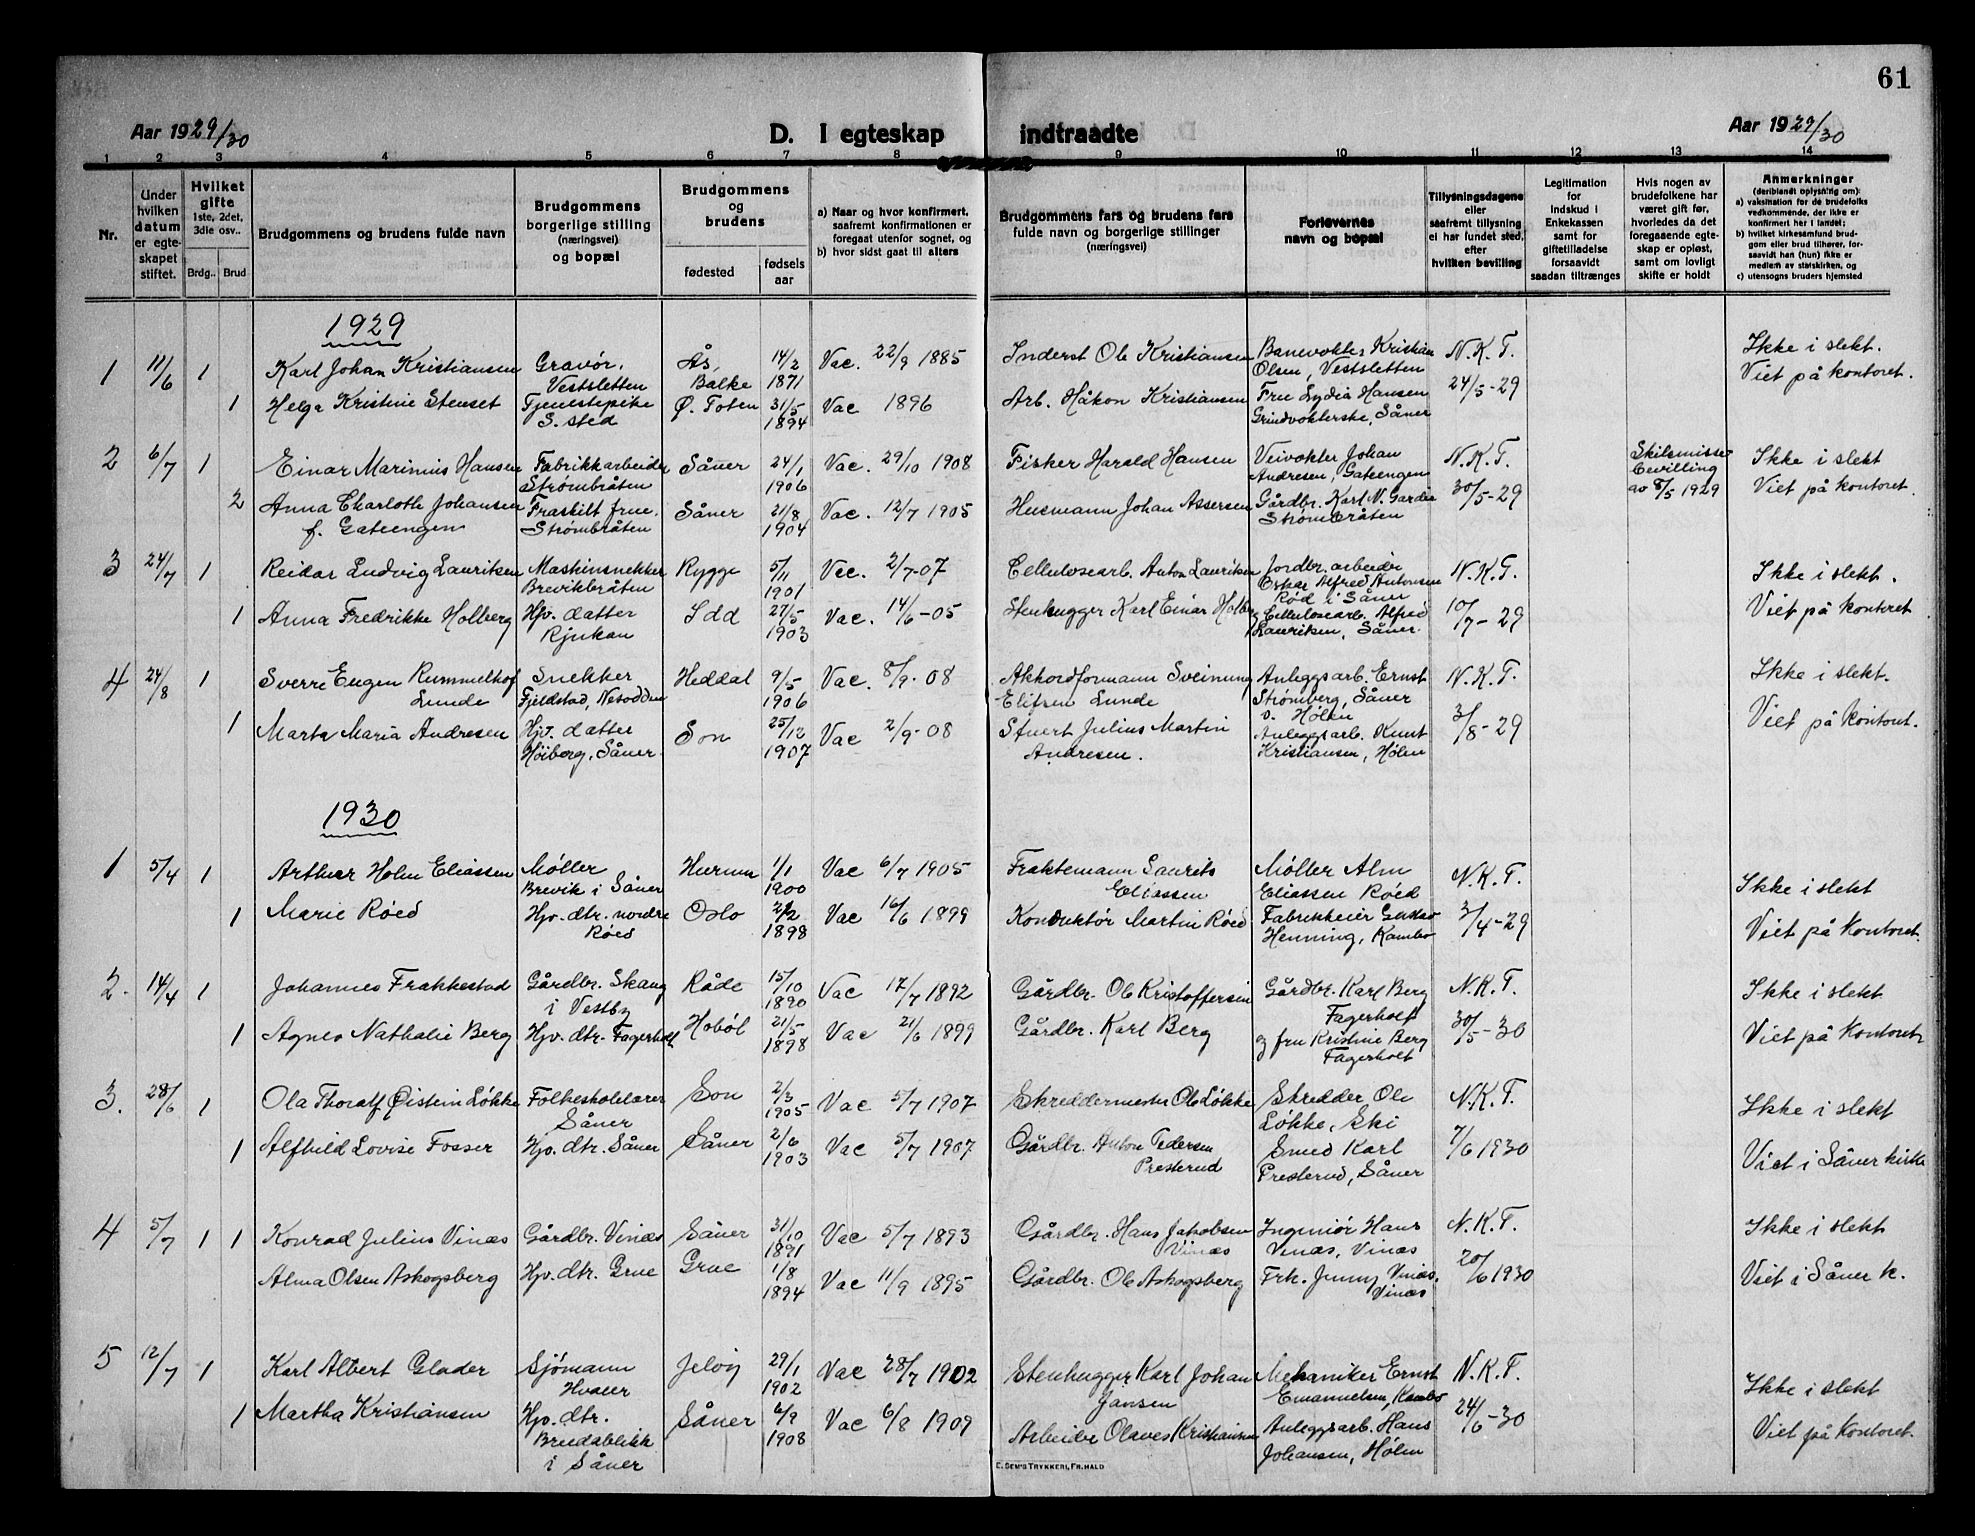 61
Aar 1929/30
D. I egteskap indtraadte
Aar 1929/30
1 2 3 4 5 6 7 8 9 10 11 12 13 14
Nr.
Under hvilken datum er egte- skapet stiftet.
Hvilket gifte 1ste, 2det, 3die osv..
Brdg.. Brud
Brudgommens og brudens fulde navn
Brudgommens borgerlige stilling (næringsvei) og bopæl
Brudgommens og brudens
fødested
fødsels aar
a) Naar og hvor konfirmert, saafremt konfirmationen er foregaat utenfor sognet, og
b) hvor sidst gaat til alters
Brudgommens fars og brudens fars fulde navn og borgerlige stillinger (næringsvei)
Forlovernes navn og bopæl
Tillysningsdagene eller saafremt tillysning ei har fundet sted, efter hvilken bevilling
Legitimation for Indskud i Enkekassen samt for giftetilladelse forsaavidt saadan tiltrænges
Hvis nogen av brudefolkene har været gift før, hvorledes da det foregaaende egte- skap er opløst, samt om lovligt skifte er holdt
Anmerkninger (deriblandt oplysning om):
a) vaksination for de brudefolks vedkommende, der ikke er konfirmert her i landet;
b) hvilket kirkesamfund brud- gom eller brud tilhører, for- saavidt han (hun) ikke er medlem av statskirken, og
c) utensogns bruders hjemsted
1929
1 11/6 1 Karl Johan Kristiansen Gravør, Vestsletten Ås, 14/2 1871 Vac. 22/9 1885 Inderst Ole Kristiansen Banevokter Kristian Olsen, Vestsletten N.K.T. Ikke i slekt.
1 Helga Kristine Stenset Tjenestepike S. sted Balke Ø. Toten 31/5 1894 Vac 1896 Arb. Håkon Kristiansen Fru Lydia Hansen Grindvokterske, Såner 24/5-29 Viet på kontoret.
2 6/7 1 Einar Marinius Hansen Fabrikkarbeider Strømbråten Såner 24/1 1906 Vac. 29/10 1908 Fisker Harald Hansen Veivokter Johan Andresen, Gateengen N.K.T. Skilsmisse bevilling av 8/5 1929 Ikke i slekt
2 Anna Charloth Johansen f. Gateengen Fraskilt frue. Strømbråten Såner 21/8 1904 Vac. 12/7 1905 Husmann Johan Assersen Gårdbr. Karl N. Garder Strømbråten 30/5-29 Viet på kontoret.
3 24/7 1 Reidar Ludvig Lauritsen Maskinsnekker Brevikbråten Rygge 5/11 1901 Vec. 2/7-07 Cellulosearb. Anton Lauritsen Jordbr. arbeider Oskar Alfred Antonsen Rød i Såner N.K.T. Ikke i slekt.
1 Anna Fredrikke Holberg Hjv. datter Rjukan Idd 27/5 1903 Vac. 14/6-05 Stenhugger Karl Einar Holberg og Cellulosearb. Alfred Lauritsen, Såner. 10/7-29 Viet på kontoret
4 24/8 1 Sverre Eugen Rummelhof Lunde Snekker Fjeldstad, Nesodden Heddal 9/5 1906 Vac. 8/9-08 Akkordformann Sveinung Elifsen Lunde Anleggsarb. Ernst Strømberg, Såner v. Hølen N.K.T. Ikke i slekt.
1 Marta Maria Andresen Hjv. datter Høiberg, Såner. Son 25/12 1907 Vac 2/9-08 Stuert Julius Martin Andresen. Anleggsarb. Knut Kristiansen, Hølen 3/8-29 Viet på kontoret.
1930
1 5/4 1 Arthur Holm Eliassen Møller Brevik i Såner Hurum 1/1 1900 Vac 6/7 1905 Fraktemann Laurits Eliassen Møller Alm Eliassen Røed N.K.T. Ikke i slekt
1 Marie Røed Hjv. dtr. nordre Røed Oslo 2/2 1898 Vac 16/6 1899 Konduktør Martin Røed Fabrikkeier Gustav Henning, Kambo 3/4-29 Viet på kontoret.
2. 14/4 1 Johannes Frakkestad Gårdbr. Skaug i Vestby Råde 15/10 1890 Vac 17/7 1892 Gårdbr. Ole Kristoffersen Gårdbr. Karl Berg Fagerholt N.K.T. Ikke i slekt
1 Agnes Nathalie Berg Hjv. dtr. Fagerholt Hobøl 21/5 1898 Vac 21/6 1899 Gårdbr. Karl Berg og fru Kristine Berg Fagerholt 30/5-30 Viet på kontoret
3. 28/6 1 Ola Thoralf Øistein Løkke Folkeskolelærer Såner Son 2/3 1905 Vac 5/7 1907 Skreddermester Ole Løkke Skredder Ole Løkke, Ski N.K.T. Ikke i slekt
1 Alfhild Lovise Fosser Hjv. dtr. Såner Såner 2/6 1903 Vac 5/7 1907 Gårdbr. Anton Pedersen Presterud Smed Karl Presterud, Såner 7/6 1930 Viet i Såner kirke
4 5/7 1 1 Konrad Julius Vinæs Gårdbr. Vinæs Såner 31/10 1891 Vac 5/7 1893 Gårdbr. Hans Jakobsen Vinæs Ingeniør Hans Vinæs, Vinæs N.K.T. Ikke i slekt
Alma Olsen Askogsberg Hjv. dtr. Grue Grue 1/8 1894 Vac 11/9 1895 Gårdbr. Ole Askogsberg Frk. Jenny Vinæs, Vinæs 20/6 1930 Viet i Såner k.
5 12/7 1 Karl Albert Glader Sjømann Hvaler Jeløy 29/1 1902 Vac 28/7 1902 Stenhugger Karl Johan Jansen Mekaniker Ernst Emanuelsen, Kambo N.K.T. Ikke i slekt
1 Martha Kristiansen Hjv. dtr. Breidablikk i Såner Såner 6/9 1908 Vac 6/8 1909 Arbeider Olaves Kristiansen Anleggsarb. Hans Johansen, Hølen 24/6-30 Viet på kontoret.
E. SEM'S TRYKKERI, FR.HALD